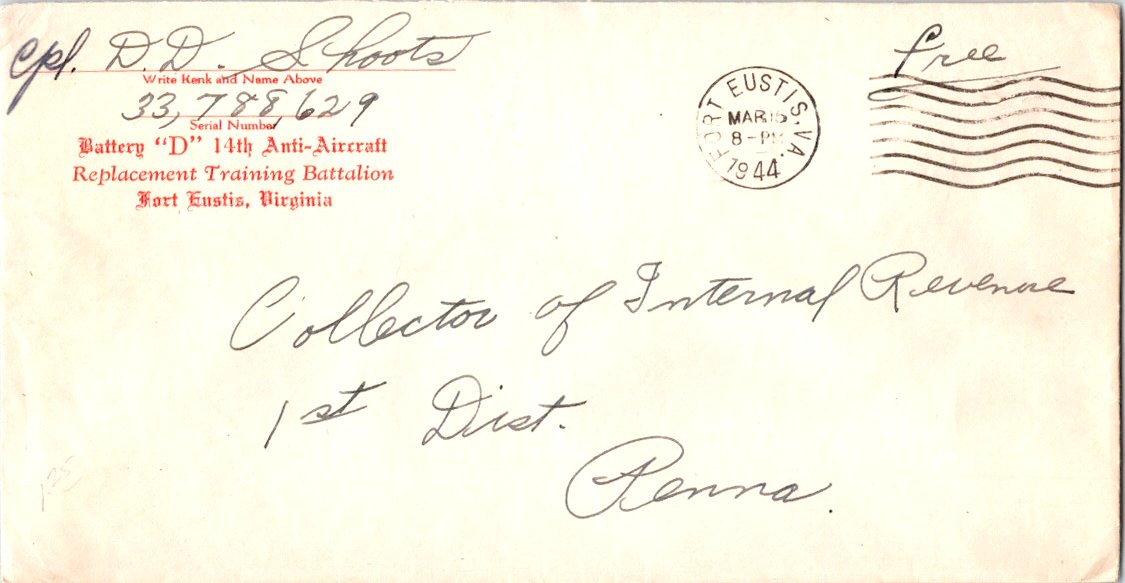 Cpl. D. D. Shoots
Write Rank and Name Above
33,788,629
Serial Number
Battery "D" 14th Anti-Aircraft
Replacement Training Battalion
Fort Eustis, Virginia
FORT EUSTIS. VA.
MAR 15
8-PM
1944
free
Collector of Internal Revenue
1st Dist.
Penna.